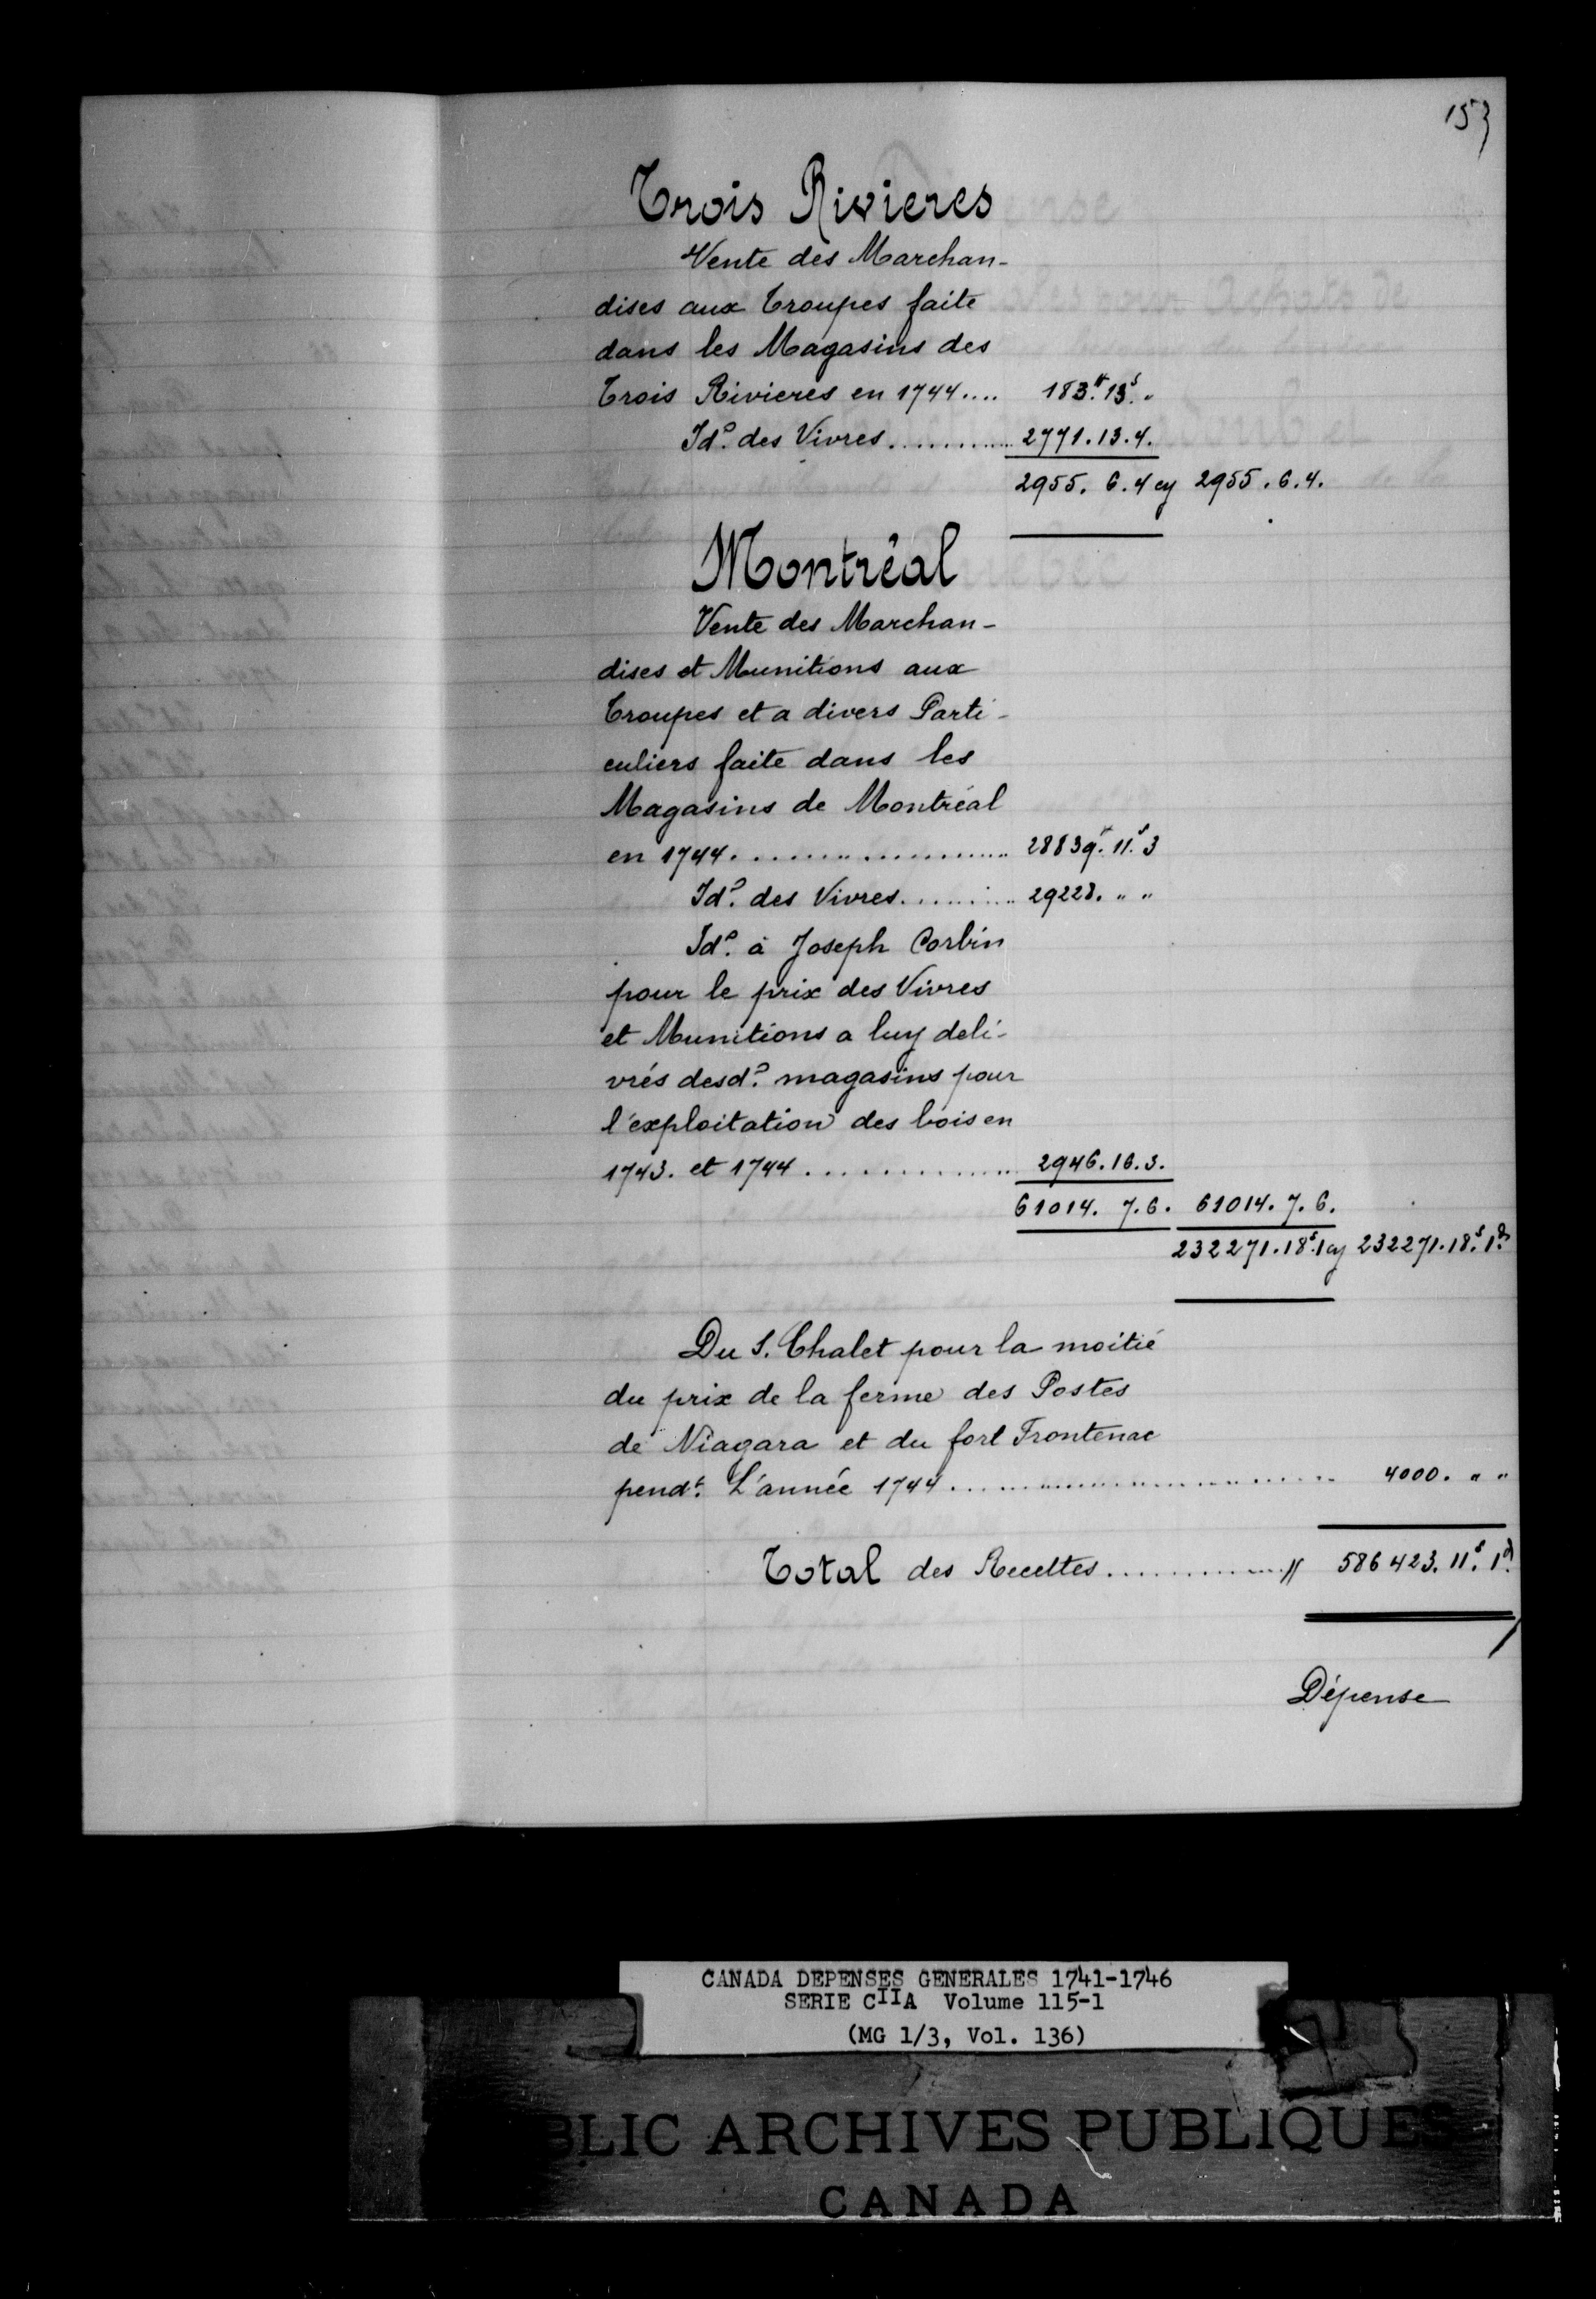 153
Trois Rivieres
Vente des Marchan-
dises aux Troupes faite
dans les Magasins des
Trois Rivieres en 1744.... 183.ᵗᵗ 13.ˢ "
Idº. des Vivres............ 2771.13.4.
2955. 6. 4 cy 2955. 6. 4.
Montréal
Vente des Marchan-
dises et Munitions aux
Troupes et a divers Parti-
culiers faite dans les
Magasins de Montréal
en 1744..................... 28839.ᵗᵗ 11.ˢ 3
Idº. des Vivres............ 29228. " "
Idº. à Joseph Corbin
pour le prix des Vivres
et Munitions a luy deli-
vrés desdº. magasins pour
l'exploitation des bois en
1743. et 1744............... 2946.16.3.
61014. 7. 6. 61014. 7. 6.
232271.18.ˢ 1 cy 232271.18.ˢ 1.ᵈ
Du S. Chalet pour la moitié
du prix de la ferme des Postes
de Niagara et du fort Frontenac
pendᵗ. L'année 1744.............................. 4000. " "
Total des Recettes................ ᵗᵗ 586423. 11.ˢ 1.ᵈ
Dépense
CANADA DEPENSES GENERALES 1741-1746
SERIE CIIA Volume 115-1
(MG 1/3, Vol. 136)
BLIC ARCHIVES PUBLIQUES
CANADA